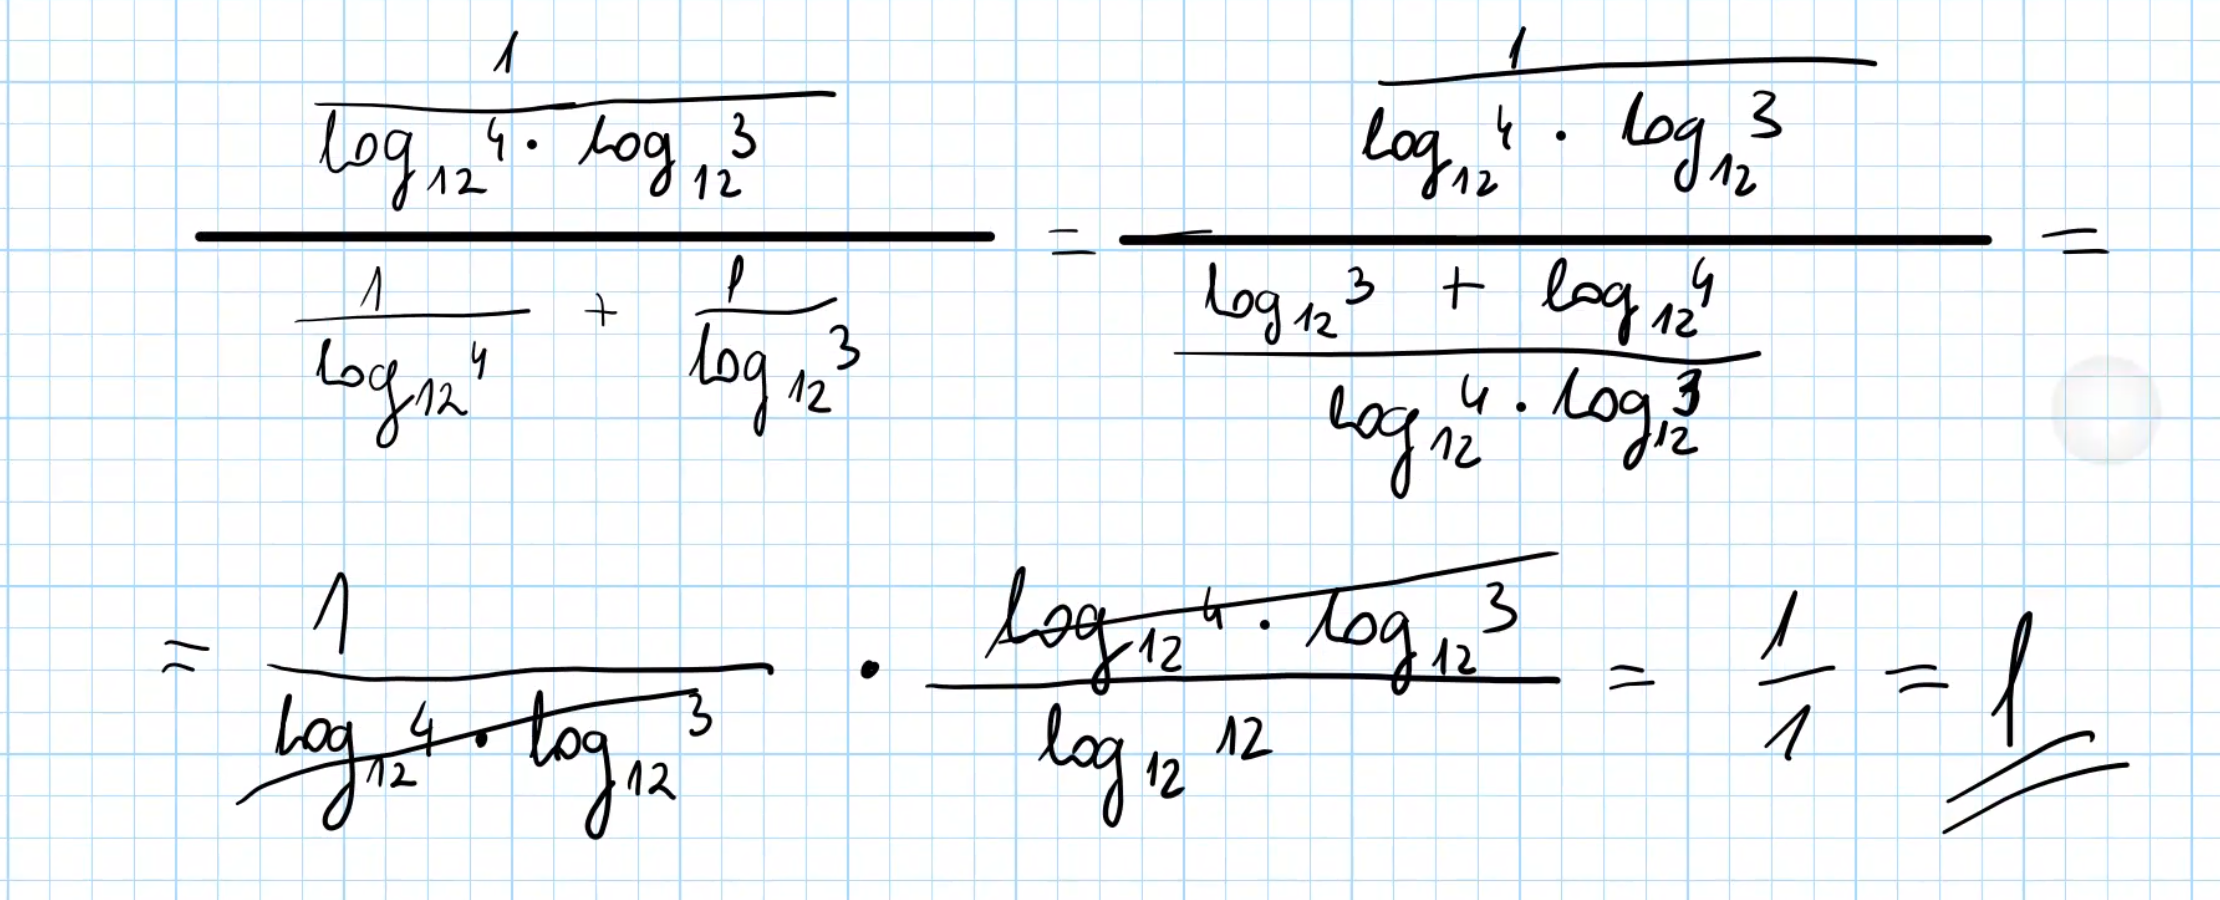 \frac{\frac{1}{\log_{12} 4 \cdot \log_{12} 3}}{\frac{1}{\log_{12} 4} + \frac{1}{\log_{12} 3}} = \frac{\frac{1}{\log_{12} 4 \cdot \log_{12} 3}}{\frac{\log_{12} 3 + \log_{12} 4}{\log_{12} 4 \cdot \log_{12} 3}} =
= \frac{1}{\log_{12} 4 \cdot \log_{12} 3} \cdot \frac{\log_{12} 4 \cdot \log_{12} 3}{\log_{12} 12} = \frac{1}{1} = 1